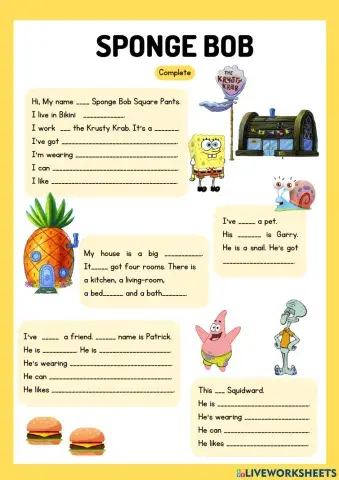 SPONGE BOB
Complete
THE
KRUSTY
KRAB
Hi, My name ____ Sponge Bob Square Pants.
I live in Bikini ____________.
I work ___ the Krusty Krab. It's a _______.
I've got ______________________________
I'm wearing ___________________________
I can _________________________________
I like _________________________________
I've _____ a pet.
His _______ is Garry.
He is a snail. He's got
______________________.
My house is a big ____________.
It_____ got four rooms. There is
a kitchen, a living-room,
a bed______ and a bath_______.
I've _____ a friend. ______ name is Patrick.
He is __________. He is _______________.
He's wearing ____________________________.
He can __________________________________.
He likes _________________________________.
This ___ Squidward.
He is ___________________________.
He's wearing _____________________.
He can ___________________________
He likes __________________________
LIVEWORKSHEETS